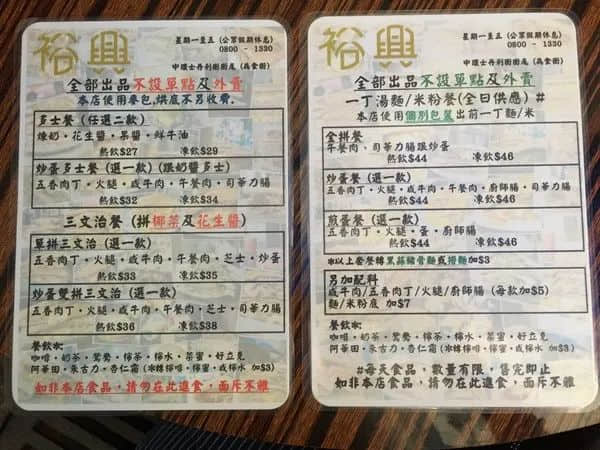 裕興
星期一至五 (公眾假期休息)
0800 - 1330
中環士丹利街街尾 (為食街)
全部出品不設單點及外賣
本店使用麥包,烘底不另收費.
多士餐 (任選二款)
煉奶·花生醬·果醬·鮮牛油
熱飲$27 凍飲$29
炒蛋多士餐 (選一款) (跟奶醬多士)
五香肉丁·火腿·咸牛肉·午餐肉·司華力腸
熱飲$32 凍飲$34
三文治餐 (拼椰菜及花生醬)
單拼三文治 (選一款)
五香肉丁·火腿·咸牛肉·午餐肉·芝士·炒蛋
熱飲$33 凍飲$35
炒蛋雙拼三文治 (選一款)
五香肉丁·火腿·咸牛肉·午餐肉·芝士·司華力腸
熱飲$36 凍飲$38
餐飲:
咖啡·奶茶·鴛鴦·檸茶·檸水·菜蜜·好立克
阿華田·朱古力·杏仁霜 (冰轉檸啡,檸蜜,或檸水 加$3)
如非本店食品,請勿在此進食,面斥不雅
裕興
星期一至五 (公眾假期休息)
0800 - 1330
中環士丹利街街尾 (為食街)
全部出品不設單點及外賣
一丁湯麵/米粉餐(全日供應) #
本店使用個別包裝出前一丁麵/米
全拼餐
午餐肉、司華力腸跟炒蛋
熱飲$44 凍飲$46
炒蛋餐 (選一款)
五香肉丁·火腿·咸牛肉·午餐肉·廚師腸·司華力腸
熱飲$44 凍飲$46
煎蛋餐 (選一款)
五香肉丁·火腿·蛋·廚師腸
熱飲$44 凍飲$46
※以上套餐轉黑蒜豬骨麵或撈麵加$3
另加配料
咸牛肉/五香肉丁/火腿/廚師腸 (每款加$5)
麵/米粉底 加$7
餐飲:
咖啡·奶茶·鴛鴦·檸茶·檸水·菜蜜·好立克
阿華田·朱古力·杏仁霜 (冰轉檸啡,檸蜜,或檸水 加$3)
#每天食品,數量有限,售完即止
如非本店食品,請勿在此進食,面斥不雅